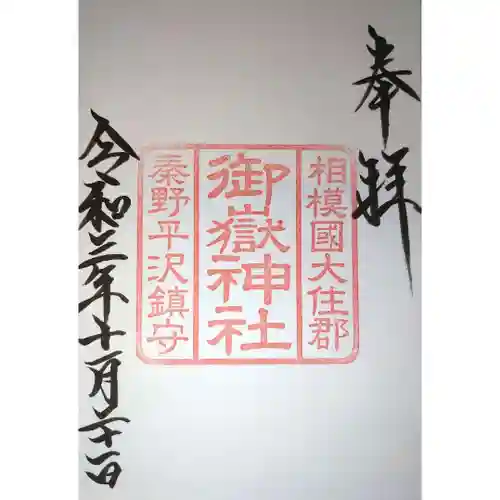 奉拝
相模國大住郡
御嶽神社
秦野平沢鎮守
令和三年十月二十一日